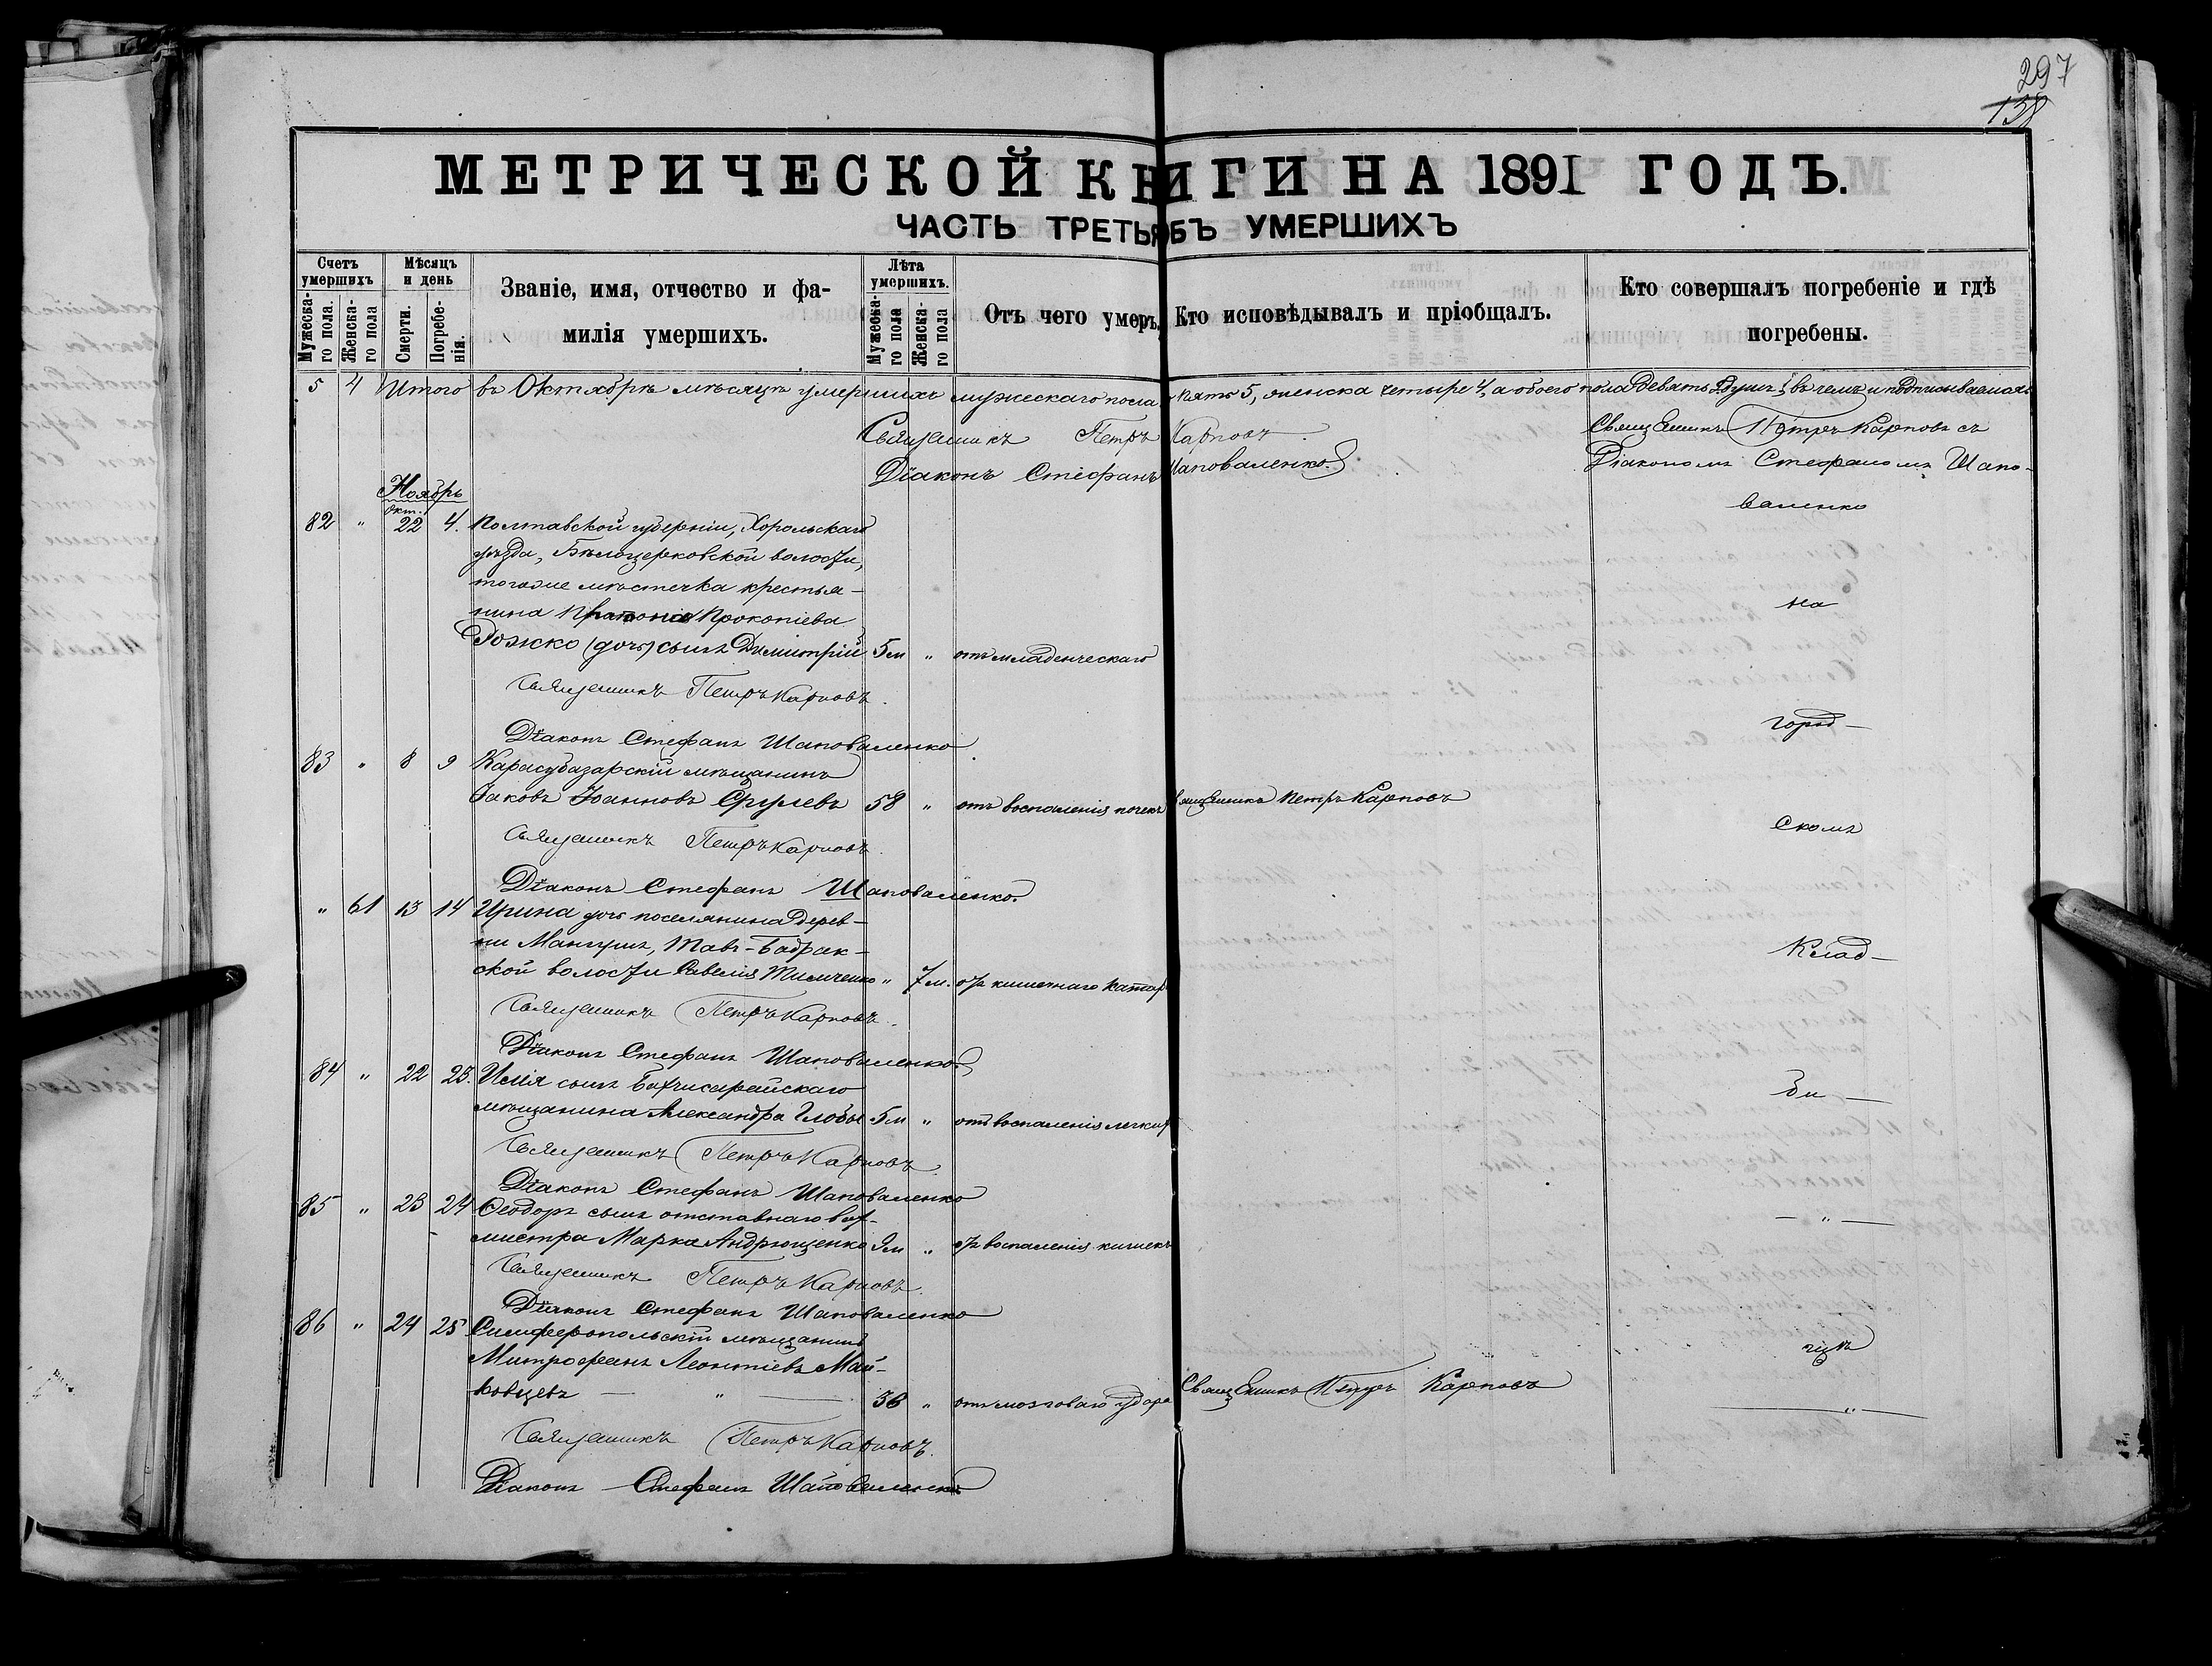 297
138
МЕТРИЧЕСКОЙ КНИГИ НА 1891 ГОДЪ.
ЧАСТЬ ТРЕТЬЯ ОБЪ УМЕРШИХЪ
Счетъ умершихъ
Мужеска-го пола.
Женска-го пола
Мѣсяцъ и день
Смерти.
Погребе-нія.
Званіе, имя, отчество и фа-
милія умершихъ.
Лѣта умершихъ.
Мужеска-го пола
Женска-го пола
Отъ чего умеръ.
Кто исповѣдывалъ и пріобщалъ.
Кто совершалъ погребеніе и гдѣ
погребены.
5 4 Итого въ Октябрѣ мѣсяцѣ умершихъ мужескаго пола пять 5, женска четыре 4, а обоего пола девять 9 душъ, въ чемъ и подписываемся:
Священникъ Петръ Карповъ.
Діаконъ Стефанъ Шаповаленко.
Священникъ Петръ Карповъ съ
Діакономъ Стефаномъ Шапо-
валенко
на
город-
скомъ
Клад-
би-
— " —
щѣ
— " —
Ноябрь
Окт.
82 " 22 4. Полтавской губерніи, Хорольскаго
уѣзда, Бѣлоцерковской волости,
тогоже мѣстечка крестья-
нина Прокопіева
Рожко (дочь) сынъ Димитрій 5м " отъ младенческаго
Священникъ Петръ Карповъ.
Діаконъ Стефанъ Шаповаленко
83 " 8 9 Карасубазарскій мѣщанинъ
Іаковъ Іоанновъ 58 " отъ воспаленія почекъ Священникъ Петръ Карповъ
Священникъ Петръ Карповъ.
Діаконъ Стефанъ Шаповаленко.
" 61 13 14 Ирина дочь поселянина дерев-
ни Мангушъ, Тавъ-Бадрак-
ской волости Савелія Тимченко " 7м. отъ кишечнаго катар
Священникъ Петръ Карповъ.
Діаконъ Стефанъ Шаповаленко.
84 " 22 23. Илія сынъ Бахчисарайскаго
мѣщанина Александра Глобы 5м " отъ воспаленія легких
Священникъ Петръ Карповъ.
Діаконъ Стефанъ Шаповаленко
85 " 23 24 Ѳеодоръ сынъ отставнаго вах-
мистра Марка Андрющенко 9м " отъ воспаленія кишекъ
Священникъ Петръ Карповъ.
Діаконъ Стефанъ Шаповаленко
86 " 24 25 Симферопольскій мѣщанинъ
Митрофанъ Леонтіевъ Май-
ковцевъ — " — 36 " отъ мозговаго удара Священникъ Петръ Карповъ
Священникъ Петръ Карповъ.
Діаконъ Стефанъ Шаповаленко